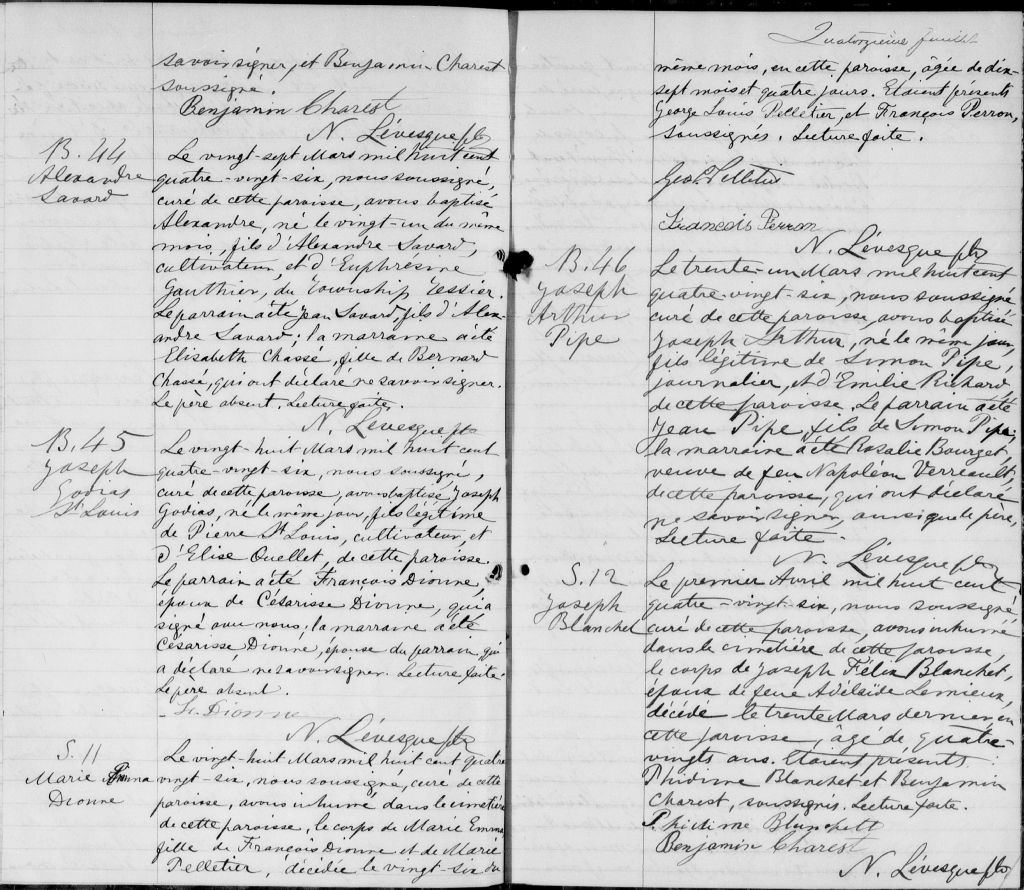 savoir signer, et Benjamin Charest
soussigné.
Benjamin Charest
N. Lévesque ptr
B. 44
Alexandre
Savard
Le vingt-sept Mars mil huit cent
quatre-vingt-six, nous soussigné,
curé de cette paroisse, avons baptisé
Alexandre, né le vingt-un du même
mois, fils d'Alexandre Savard,
cultivateur, et d'Euphrésine
Gauthier, du Township Tessier.
Le parrain a été Jean Savard, fils d'Alex-
andre Savard; la marraine a été
Elisabeth Chassé, fille de Bernard
Chassé, qui ont déclaré ne savoir signer.
Le père absent. Lecture faite.
N. Lévesque ptr
B. 45
Joseph
Godias
St Louis
Le vingt-huit Mars mil huit cent
quatre-vingt-six, nous soussigné,
curé de cette paroisse, avons baptisé Joseph
Godias, né le même jour, fils légitime
de Pierre St Louis, cultivateur, et
d'Elise Ouellet, de cette paroisse.
Le parrain a été François Dionne,
époux de Césarisse Dionne, qui a
signé avec nous; la marraine a été
Césarisse Dionne, épouse du parrain, qui
a déclaré ne savoir signer. Lecture faite.
Le père absent.
Fr. Dionne
N. Lévesque ptr
S. 11
Marie Emma
Dionne
Le vingt-huit Mars mil huit cent quatre
vingt-six, nous soussigné, curé de cette
paroisse, avons inhumé dans le cimetière
de cette paroisse, le corps de Marie Emma
fille de François Dionne et de Marie
Pelletier, décédée le vingt-six du
Quatorzième feuillet
même mois, en cette paroisse, âgée de dix-
sept mois et quatre jours. Etaient présents
George Louis Pelletier, et François Perron,
soussignés. Lecture faite.
Geo L Pelletier
Francois Perron
N. Lévesque ptr
B. 46
Joseph
Arthur
Pipe
Le trente-un Mars mil huit cent
quatre-vingt-six, nous soussigné
curé de cette paroisse, avons baptisé
Joseph Arthur, né le même jour,
fils légitime de Simon Pipe,
journalier, et d'Emilie Richard,
de cette paroisse. Le parrain a été
Jean Pipe, fils de Simon Pipe;
la marraine a été Rosalie Bourget,
veuve de feu Napoléon Verreault,
de cette paroisse, qui ont déclaré
ne savoir signer, ainsi que le père,
Lecture faite.
N. Lévesque ptr
S. 12
Joseph
Blanchet
Le premier Avril mil huit cent
quatre-vingt-six, nous soussigné
curé de cette paroisse, avons inhumé
dans le cimetière de cette paroisse,
le corps de Joseph Félix Blanchet,
époux de feue Adélaïde Lemieux,
décédé le trente Mars dernier, en
cette paroisse, âgé de quatre-
vingts ans. Etaient présents
Phidime Blanchet et Benjamin
Charest, soussignés. Lecture faite.
Phidime Blanchett
Benjamin Charest
N. Lévesque ptr